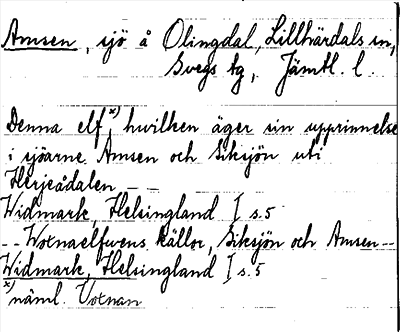 Amsen, sjö å Olingdal, Lillhärdals sn,
Svegs tg, Jämtl. l.
Denna elf,x) hwilken äger sin upprinnelse
i sjöarne Amsen och Siksjön uti
Herjeådalen --
Widmark, Helsingland I s.5
-- Wotnaelfwens källor, Siksjön och Amsen --
Widmark, Helsingland I s.5
x) näml. Votnan